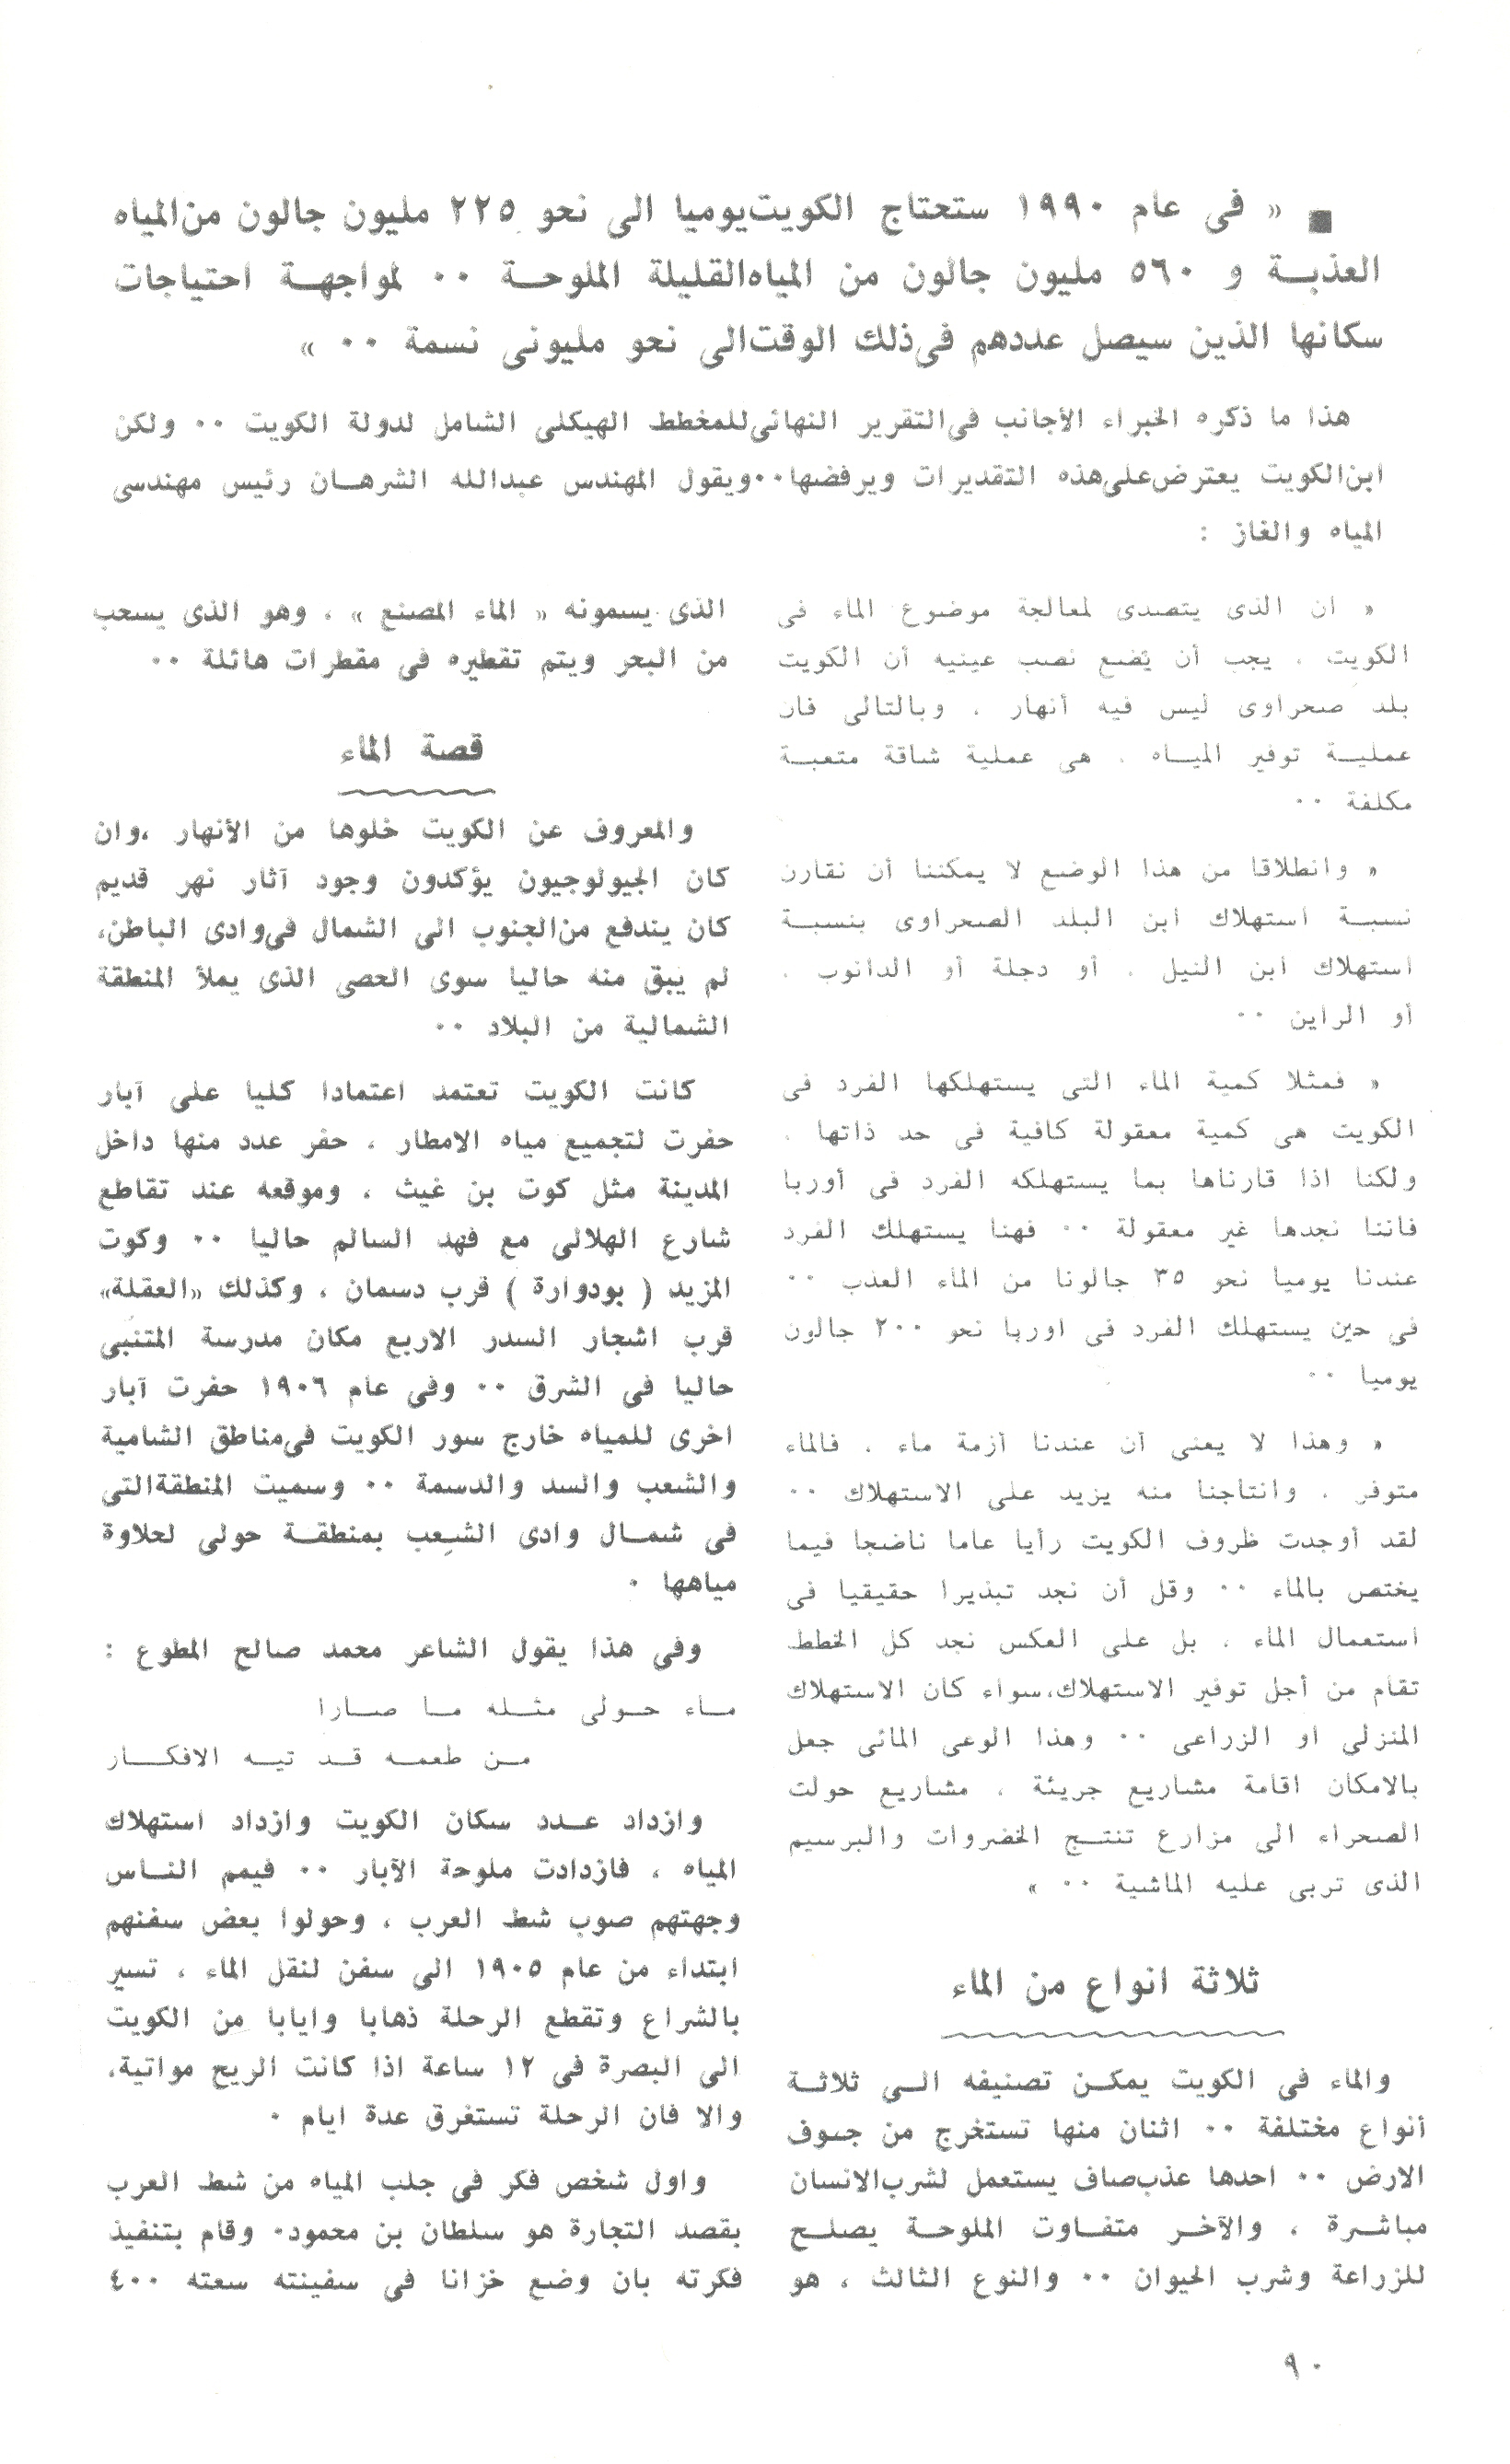 ■ « فى عام ١٩٩٠ ستحتاج الكويت يوميا الى نحو ٢٢٥ مليون جالون من المياه
العذبــة و ٥٦٠ مليون جالون من المياه القليلة الملوحــة ٠٠ لمواجهــة احتياجات
سكانها الذين سيصل عددهم فى ذلك الوقت الى نحو مليونى نسمة ٠٠ »
هذا ما ذكره الخبراء الأجانب فى التقرير النهائى للمخطط الهيكلى الشامل لدولة الكويت ٠٠ ولكن
ابن الكويت يعترض على هذه التقديرات ويرفضها ٠٠ ويقول المهندس عبدالله الشرهــان رئيس مهندسى
المياه والغاز :
« ان الذى يتصدى لمعالجة موضوع الماء فى
الكويت ، يجب أن يضع نصب عينيه أن الكويت
بلد صحراوى ليس فيه أنهار ، وبالتالى فان
عمليــة توفير الميــاه ، هى عملية شاقة متعبــة
مكلفة ٠٠
« وانطلاقا من هذا الوضع لا يمكننا أن نقارن
نسبــة استهلاك ابن البلد الصحراوى بنسبــة
استهلاك ابن النيل ، أو دجلة أو الدانوب ،
أو الراين ٠٠
« فمثلا كمية الماء التى يستهلكها الفرد فى
الكويت هى كمية معقولة كافية فى حد ذاتها ،
ولكنا اذا قارناها بما يستهلكه الفرد فى أوربا
فاننا نجدها غير معقولة ٠٠ فهنا يستهلك الفرد
عندنا يوميا نحو ٣٥ جالونا من الماء العذب ٠٠
فى حين يستهلك الفرد فى اوربا نحو ٢٠٠ جالون
يوميا ٠٠
« وهذا لا يعنى أن عندنا أزمة ماء ، فالماء
متوفر ، وانتاجنا منه يزيد على الاستهلاك ٠٠
لقد أوجدت ظروف الكويت رأيا عاما ناضجا فيما
يختص بالماء ٠٠ وقل أن نجد تبذيرا حقيقيا فى
استعمال الماء ، بل على العكس نجد كل الخطط
تقام من أجل توفير الاستهلاك،سواء كان الاستهلاك
المنزلى او الزراعى ٠٠ وهذا الوعى المائى جعل
بالامكان اقامة مشاريع جريئة ، مشاريع حولت
الصحراء الى مزارع تنتــج الخضروات والبرسيم
الذى تربى عليه الماشية ٠٠ »
ثلاثة انواع من الماء
والماء فى الكويت يمكــن تصنيفه الــى ثلاثــة
أنواع مختلفة ٠٠ اثنان منها تستخرج من جــوف
الارض ٠٠ احدها عذب صاف يستعمل لشرب الانسان
مباشــرة ، والآخــر متفــاوت الملوحــة يصلــح
للزراعة وشرب الحيوان ٠٠ والنوع الثالث ، هو
الذى يسمونه « الماء المصنع » ، وهو الذى يسحب
من البحر ويتم تقطيره فى مقطرات هائلة ٠٠
قصة الماء
والمعروف عن الكويت خلوها من الأنهار ،وان
كان الجيولوجيون يؤكدون وجود آثار نهر قديم
كان يندفع من الجنوب الى الشمال فى وادى الباطن،
لم يبق منه حاليا سوى الحصى الذى يملأ المنطقة
الشمالية من البلاد ٠٠
كانت الكويت تعتمد اعتمادا كليا على آبار
حفرت لتجميع مياه الامطار ، حفر عدد منها داخل
المدينة مثل كوت بن غيث ، وموقعه عند تقاطع
شارع الهلالى مع فهد السالم حاليا ٠٠ وكوت
المزيد ( بودوارة ) قرب دسمان ، وكذلك «العقلة»
قرب اشجار السدر الاربع مكان مدرسة المتنبى
حاليا فى الشرق ٠٠ وفى عام ١٩٠٦ حفرت آبار
اخرى للمياه خارج سور الكويت فى مناطق الشامية
والشعب والسد والدسمة ٠٠ وسميت المنطقة التى
فى شمــال وادى الشعب بمنطقــة حولى لحلاوة
مياهها ٠
وفى هذا يقول الشاعر محمد صالح المطوع :
مــاء حــولى مثــله مــا صــارا
مــن طعمــه قــد تيــه الافكــار
وازداد عــدد سكان الكويت وازداد استهلاك
المياه ، فازدادت ملوحة الآبار ٠٠ فيمم النــاس
وجهتهم صوب شط العرب ، وحولوا بعض سفنهم
ابتداء من عام ١٩٠٥ الى سفن لنقل الماء ، تسير
بالشراع وتقطع الرحلة ذهابا وايابا من الكويت
الى البصرة فى ١٢ ساعة اذا كانت الريح مواتية،
والا فان الرحلة تستغرق عدة ايام ٠
واول شخص فكر فى جلب المياه من شط العرب
بقصد التجارة هو سلطان بن محمود٠ وقام بتنفيذ
فكرته بان وضع خزانا فى سفينته سعته ٤٠٠
٩٠